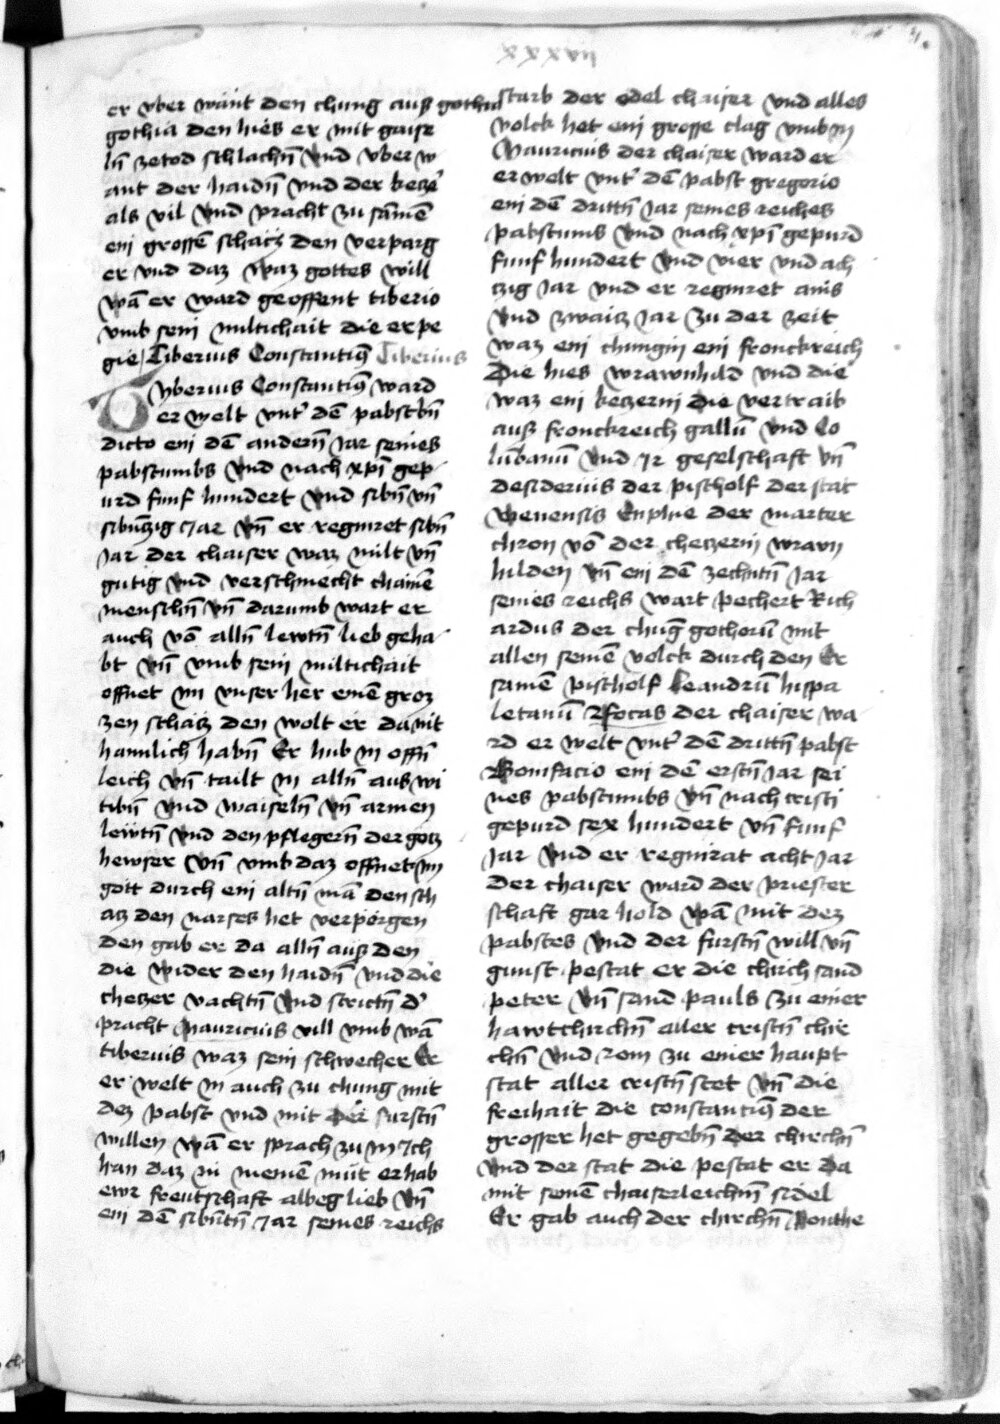 xxxvii
er vber want den chung auß gothia
gothia den hies er mit gaise
ln̄ zetod schlachn̄ vnd vber w
ant der haidn̄ vnd der keczer
als vil vnd pracht zu sāmē
ein grossē schacz den verparg
er vnd daz waz gottes will
wā er ward geoffent tiberio
vmb sein miltichait die er pe
gie Tiberius Constantiꝰ Tiberius
Tyberius Constantiꝰ ward
er welt vnt' dē pabst bn̄
dicto ein dē andern̄ Jar seines
pabstumbs vnd nach xp̄i gep
urd funf hundert vnd sibn̄ vn̄
sibn̄czig Jar vn̄ er regniret sibn̄
Jar der chaiser waz milt vn̄
gutig vnd verschmecht chainē
menschn̄ vn̄ darumb wart er
auch vō alln̄ lewtn̄ lieb geha
bt vn̄ vmb sein miltichait
offnet im vnser her einē groz
zen schacz den wolt er da nit
haimlich habn̄ Er hub in offn̄
leich vn̄ tailt in alln̄ aus wi
tibn̄ vnd waiseln̄ vn̄ armen
lewtn̄ vnd den pflegern̄ der gocz
hewser vn̄ vmb daz offnet im
gott durch ein altn̄ mā den sch
acz den narses het verporgen
den gab er da alln̄ auß den
die wider den haidn̄ vnd die
checzer vachtn̄ vnd strictn̄ d'
pracht Mauricius vill vmb wā
tiberius waz sein schwecher Er
er welt in auch zu chung mit
dez pabst vnd mit der furstn̄
willen wā er sprach zu im Ich
han daz in meinē müt er hab
ewr freutschaft albeg lieb vn̄
ein dē sibn̄tn̄ Jar seines reichs
starb der edel chaiser vnd alles
volck het ein grosse clag vmb in
Mauricius der chaiser ward er
er welt vnt' dē pabst gregorio
ein dē drittn̄ Jar seines reiches
pabstums vnd nach xp̄i gepurd
funf hundert vnd vier vnd ach
czig Jar vnd er regniret ains
vnd zwaicz Jar zu der zeit
waz ein chungin ein franckreich
Die hies wrawnhild vnd die
waz ein keczerin die vertraib
auß fronckreich gallū vnd Co
lūbanū vnd Ir geselschaft vn̄
desiderius der pischolf der stat
Wenensis Enphie der marter
chron vō der checzerin wraun
hilden vn̄ ein dē zechntn̄ Jar
seines reichs wart pechert Rich
ardus der chūg gothorū mit
allen seinē volck durch den Er
samē pischolf Leandrū hispa
letanū Focas der chaiser wa
rd er welt vnt' dē drittn̄ pabst
Bonifacio ein dē erstn̄ Jar sei
nes pabstumbs vn̄ nach cristi
gepurd sex hundert vn̄ funf
Jar vnd er regnirat acht Jar
der chaiser ward der priester
schaft gar hold wā mit dez
pabstes vnd der furstn̄ will vn̄
gunst pestat er die chirch sand
peter vn̄ sand pauls zu einer
hawtchirchn̄ aller cristn̄ chir
chn̄ vnd rom zu einer haupt
stat aller cristn̄ stet vn̄ die
freihait die constantiꝰ der
grosser het gegebn̄ der chirchn̄
vnd der stat die pestat er da
mit seinē chaiserleichn̄ sidel
Er gab auch der chirchn̄ ponthe